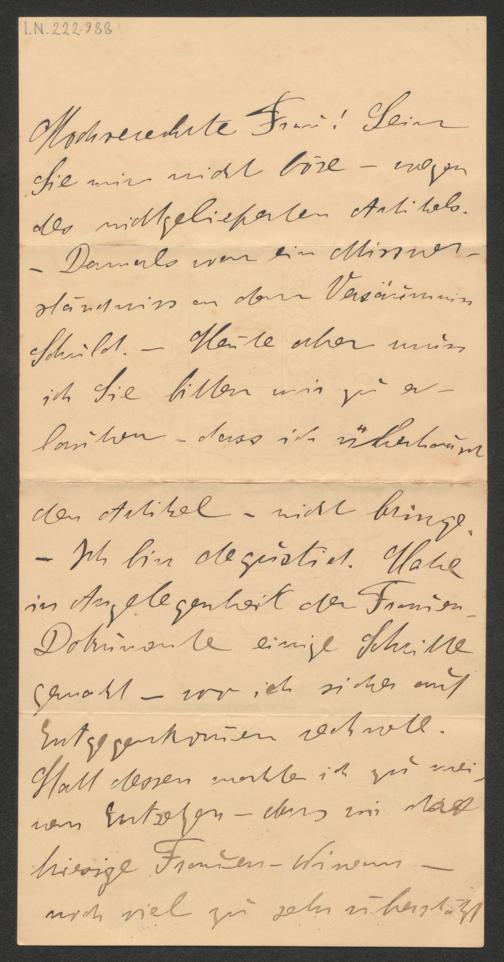 I.N. 222.988
Hochverehrte Frau! Seien
Sie mir nicht böse – wegen
des nichtgelieferten Artikels.
– Damals war ein Missver-
ständniss an dem Versäumniss
Schuld. – Heute aber muss
ich Sie bitten mir zu er-
lauben – dass ich überhaupt
den Artikel – nicht bringe.
– Ich bin degustirt. Habe
in Angelegenheit der Frauen-
Dokumente einige Schritte
gemacht – wo ich sicher auf
Entgegenkommen rechnete.
Statt dessen merkte ich zu mei-
nem Entsetzen – dass wir das
hiesige Frauen-Wissen –
noch viel zu sehr überschätzt